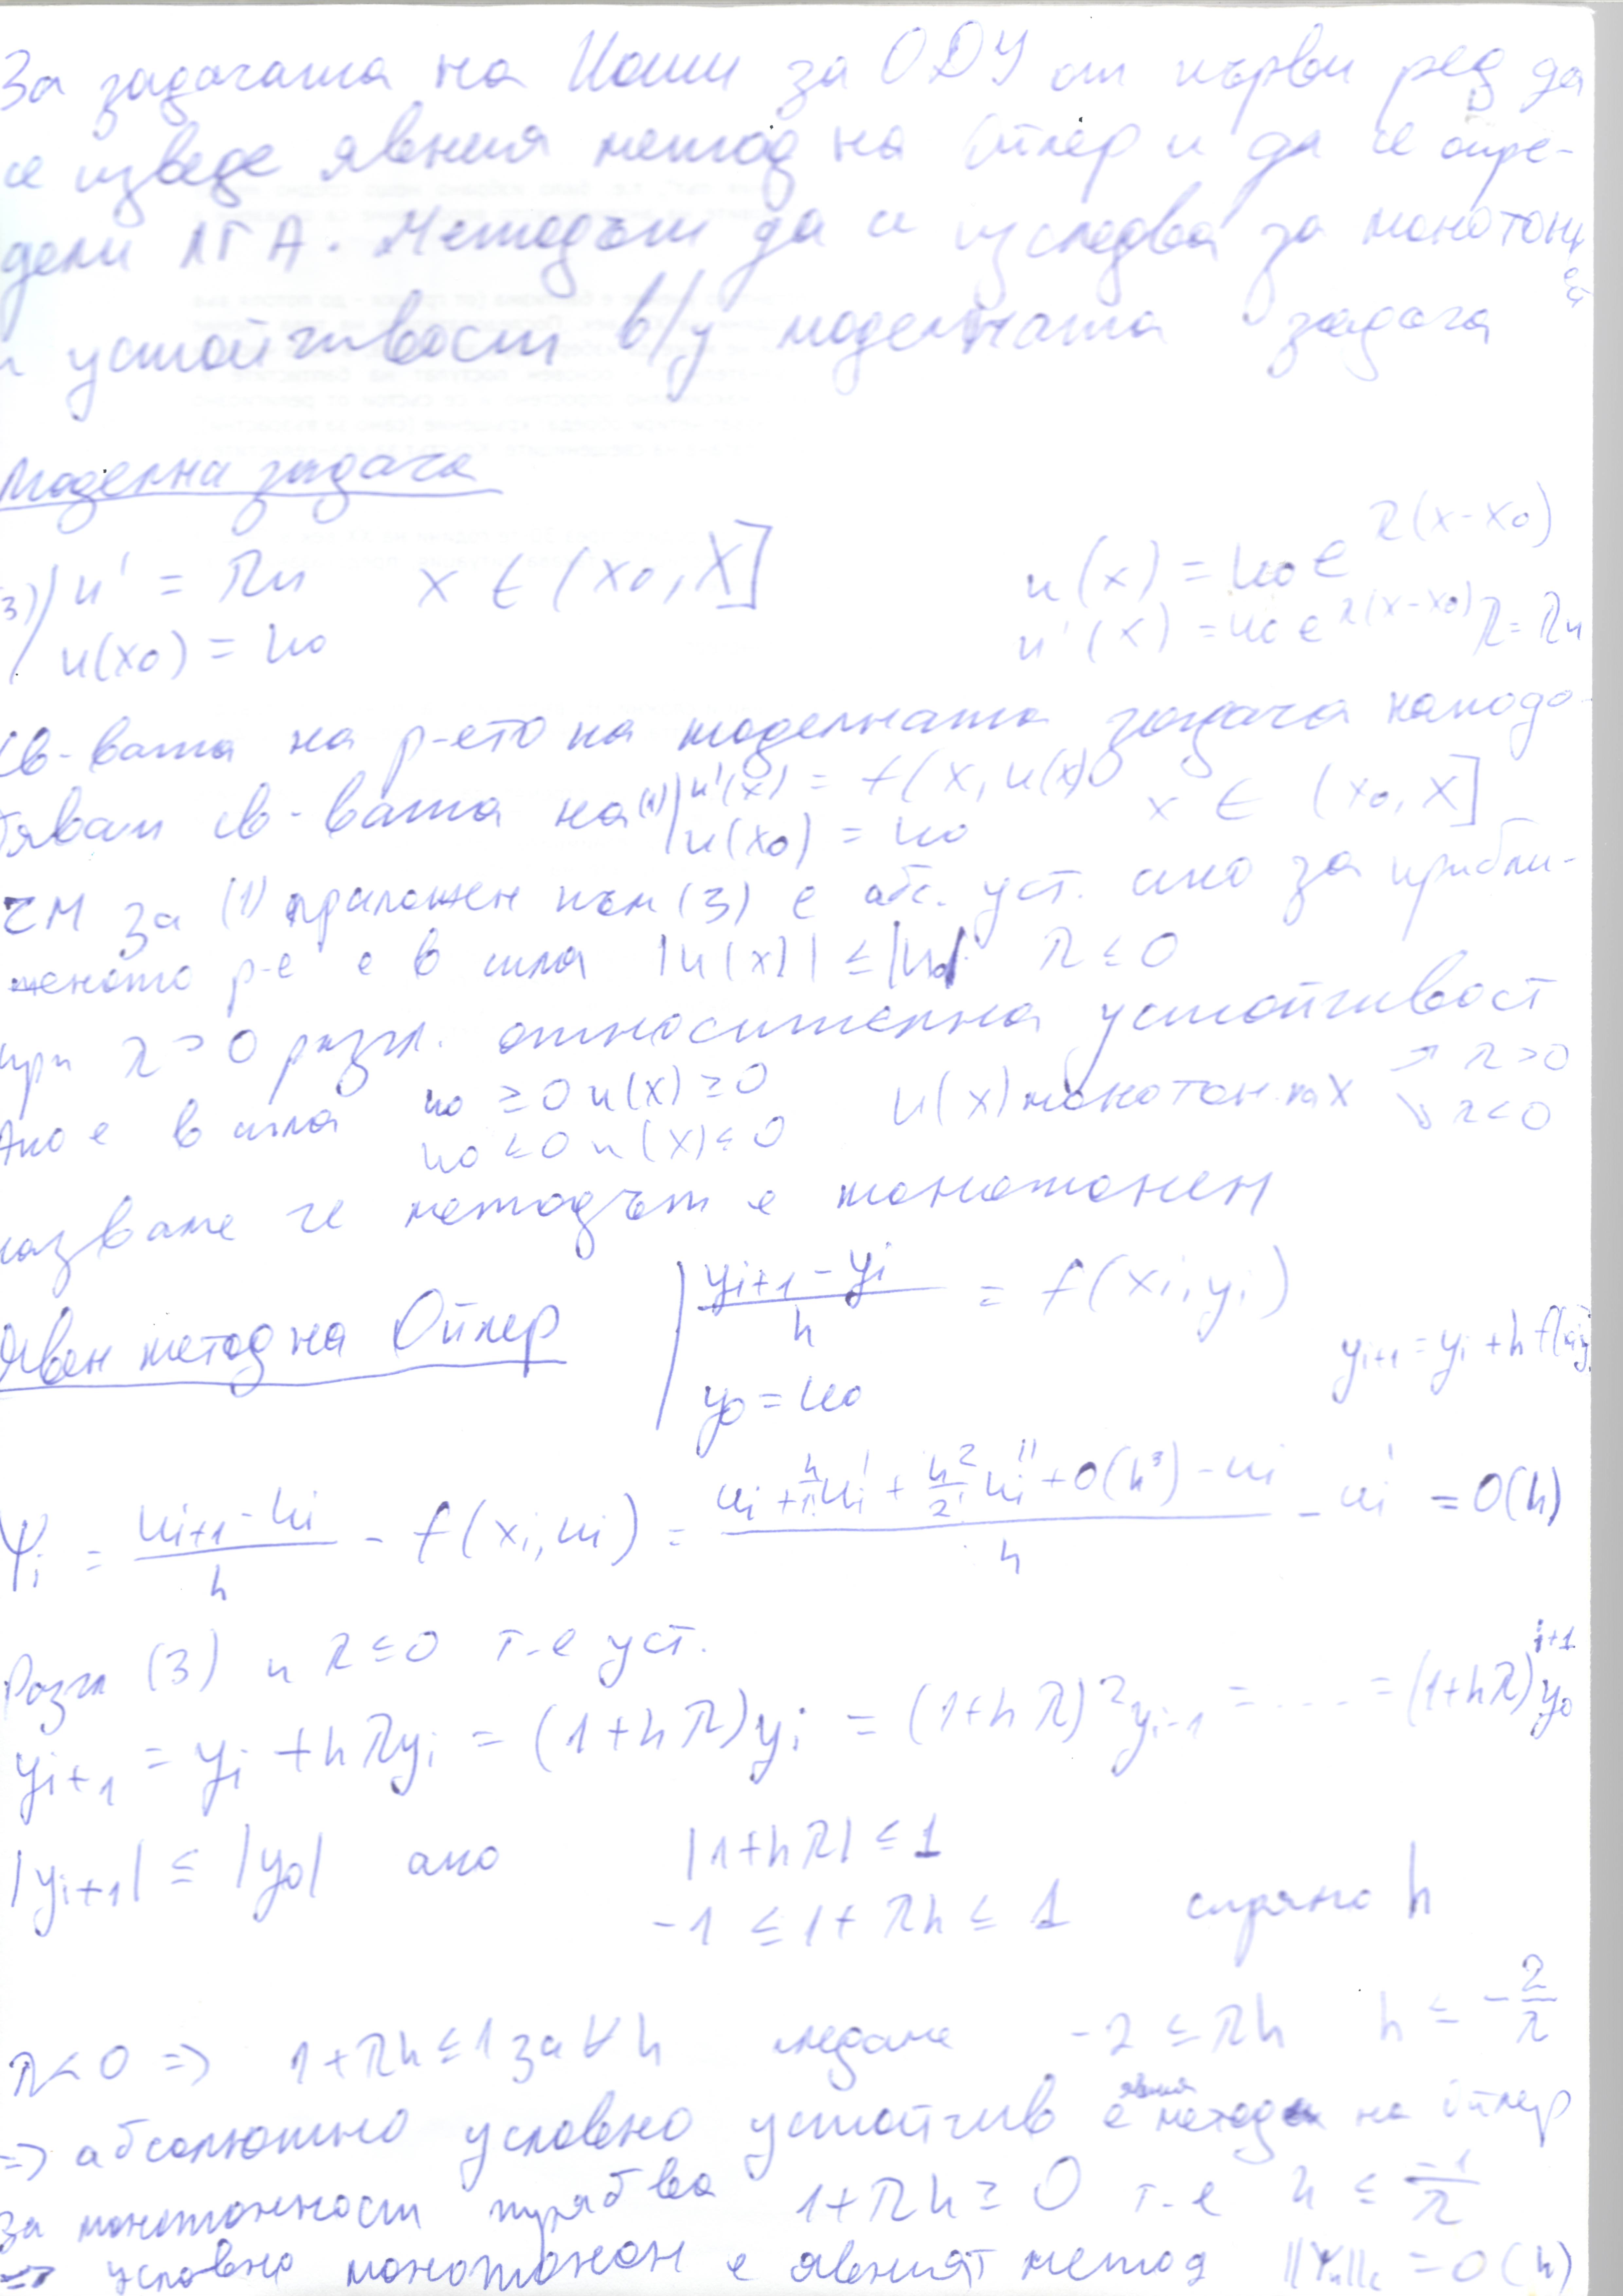 За задачата на Коши за ОДУ от първи ред да
се изведе явния метод на Ойлер и да се опре-
дели ЛГА. Методът да се изследва за монотонност
и устойчивост в/у моделната задача
Моделна задача
(3) | u' = λu x ∈ (x₀, X] u(x) = u₀ e^{λ(x-x₀)}
u(x₀) = u₀ u'(x) = u₀ e^{λ(x-x₀)} λ = λu
Св-вата на р-ето на моделната задача наподо-
бяват св-вата на (1) | u'(x) = f(x, u(x)) x ∈ (x₀, X]
u(x₀) = u₀
ЧМ за (1) приложен към (3) е абс. уст. ако за прибли-
женото р-е е в сила |u(x)| ≤ |u₀| λ ≤ 0
при λ > 0 разгл. относителна устойчивост
Ако е в сила u₀ ≥ 0 u(x) ≥ 0 u(x) монотон. на X ↗ λ > 0
u₀ ≤ 0 u(x) ≤ 0 ↘ λ < 0
казваме че методът е монотонен
Явен метод на Ойлер | (y_{i+1} - y_i)/h = f(x_i, y_i)
y₀ = u₀ y_{i+1} = y_i + h f(x_i, y_i)
Ψ_i = (u_{i+1} - u_i)/h - f(x_i, u_i) = (u_i + h/1! u_i' + h²/2! u_i'' + O(h³) - u_i)/h - u_i' = O(h)
Разгл (3) и λ ≤ 0 т.е уст.
y_{i+1} = y_i + hλy_i = (1+hλ)y_i = (1+hλ)² y_{i-1} = .... = (1+hλ)^{i+1} y₀
|y_{i+1}| ≤ |y₀| ако |1+hλ| ≤ 1
-1 ≤ 1+λh ≤ 1 спрямо h
λ < 0 => 1+λh ≤ 1 за ∀ h гледаме -2 ≤ λh h ≤ -2/λ
=> абсолютно условно устойчив е явния метод на Ойлер
За монотонност трябва 1+λh ≥ 0 т.е h ≤ -1/λ
=> условно монотонен е явният метод ||Ψ_h||_c = O(h)